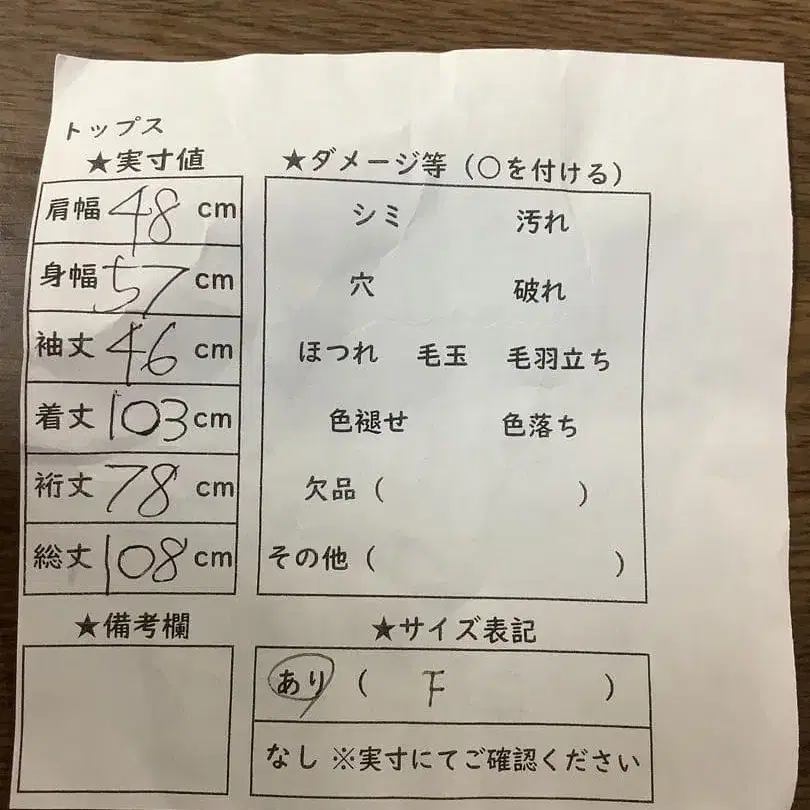 トップス
★実寸値
肩幅 48 cm
身幅 57 cm
袖丈 46 cm
着丈 103 cm
裄丈 78 cm
総丈 108 cm
★備考欄
★ダメージ等（○を付ける）
シミ 汚れ
穴 破れ
ほつれ 毛玉 毛羽立ち
色褪せ 色落ち
欠品（ ）
その他（ ）
★サイズ表記
あり（ F ）
なし ※実寸にてご確認ください